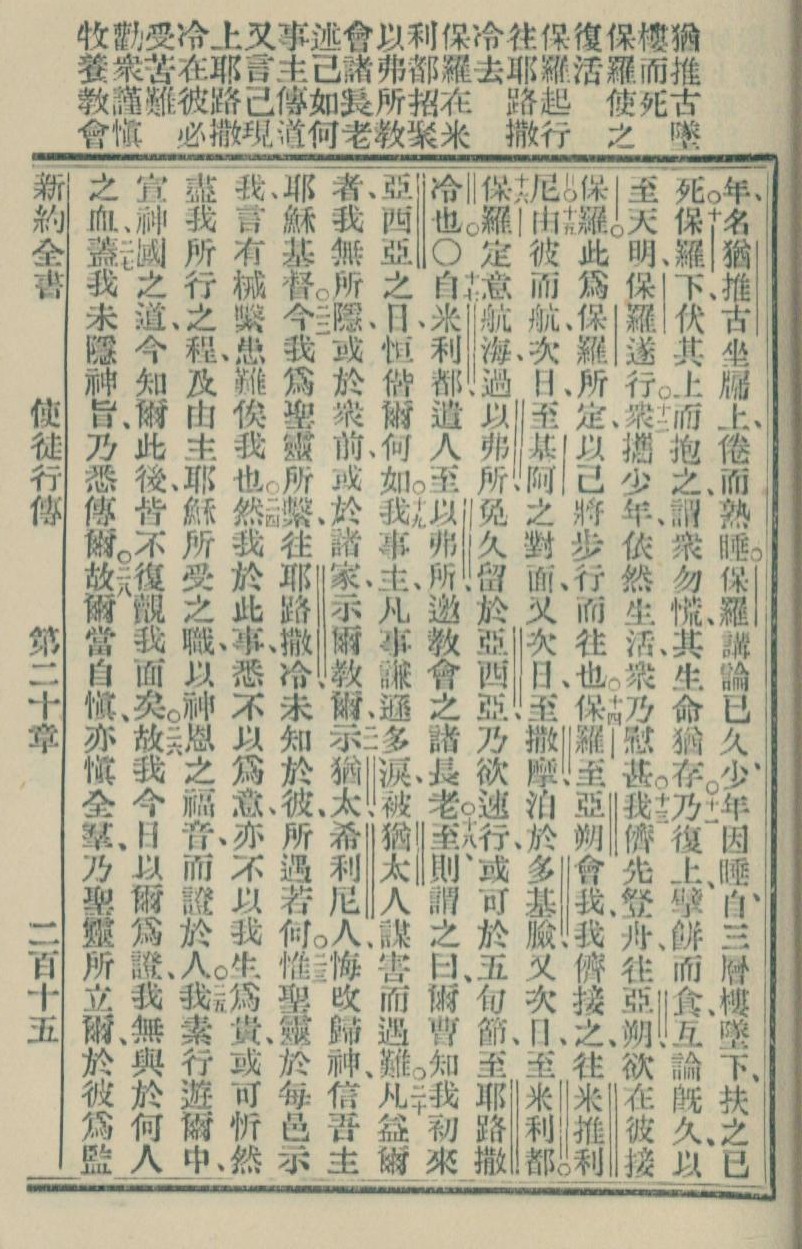 猶推古墜
樓而死
保羅使之
復活
保羅起行
往耶路撒
冷去
保羅在米
利都招聚
以弗所教
會諸長老
述己如何
事主傳道
又言己現
上耶路撒
冷在彼必
受苦難
勸衆謹愼
牧養教會
年、名猶推古坐牖上、倦而熟睡。保羅講論已久、少年因睡、自三層樓墜下、扶之已
死。○十保羅下、伏其上而抱之、謂衆勿慌、其生命猶存。○十一乃復上、擘餅而食、互論旣久、以
至天明、保羅遂行。○十二衆攜少年、依然生活、衆乃慰甚。○十三我儕先登舟、往亞朔、欲在彼接
保羅、此爲保羅所定、以己將步行而往也。○十四保羅至亞朔會我、我儕接之、往米推利
尼。○十五由彼而航、次日、至基阿之對面、又次日、至撒摩、泊於多基臉、又次日、至米利都。
○十六保羅定意航海、過以弗所、免久留於亞西亞、乃欲速行、或可於五旬節、至耶路撒
冷也。〇○十七自米利都遣人至以弗所、邀教會之諸長老。○十八至、則謂之曰、爾曹知我初來
亞西亞之日、恒偕爾何如。○十九我事主、凡事謙遜多淚、被猶太人謀害而遇難。○二十凡益爾
者、我無所隱、或於衆前、或於諸家、示爾教爾、二一示猶太希利尼人、悔改歸神、信吾主
耶穌基督。○二二今我爲聖靈所繫、往耶路撒冷、未知於彼、所遇若何。○二三惟聖靈於每邑示
我、言有械繫患難俟我也。○二四然我於此事、悉不以爲意、亦不以我生爲貴、或可忻然
盡我所行之程、及由主耶穌所受之職、以神恩之福音、而證於人。○二五我素行遊爾中、
宣神國之道、今知爾此後、皆不復覩我面矣。○二六故我今日以爾爲證、我無與於何人
之血、二七蓋我未隱神旨、乃悉傳爾。○二八故爾當自愼、亦愼全羣、乃聖靈所立爾、於彼爲監
新約全書　使徒行傳　第二十章　二百十五